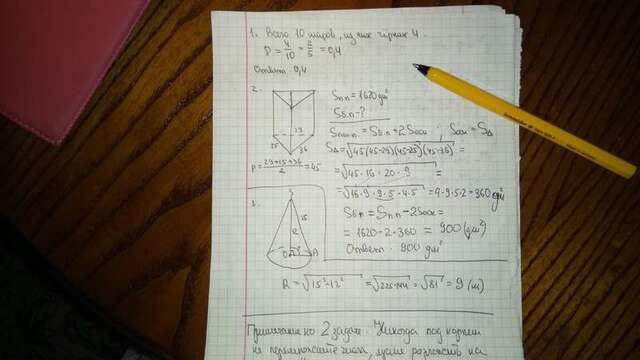 1. Всего 10 шаров, из них чёрных 4.
P = 4/10 = 2/5 = 0,4
Ответ: 0,4
2.
Sп.п = 1620 дм²
Sб.п - ?
Sполн = Sб.п + 2Sосн ; Sосн = S△
29
25
36
S△ = √45(45-29)(45-25)(45-36) =
p = 29+25+36/2 = 45
= √45·16·20·9 =
= √16·9·9·5·4·5 = 4·9·5·2 = 360 дм²
3.
15
Sб.п = Sп.п - 2Sосн =
= 1620 - 2·360 = 900 (дм²)
Ответ: 900 дм²
R = √15²-12² = √225-144 = √81 = 9 (м)
Примечание ко 2 задаче. Никогда под корнем
не перемножайте числа, лучше разложить на